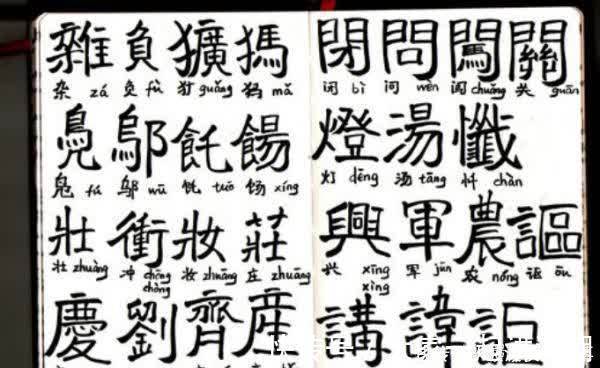 雜負獷獁
杂 zá 负 fù 犷 guǎng 犸 mǎ
鳧鄔飥餳
凫 fú 邬 wū 饦 tuō 饧 xíng
壯衝妝莊
壮 zhuàng 冲 chōng 妆 zhuāng 庄 zhuāng
chòng
慶劉齊産
閉問闖關
闭 bì 问 wèn 闯 chuǎng 关 guān
燈湯懺
灯 dēng 汤 tāng 忏 chàn
興軍農謳
兴 xīng 军 jūn 农 nóng 讴 ōu
xìng
講諱詎